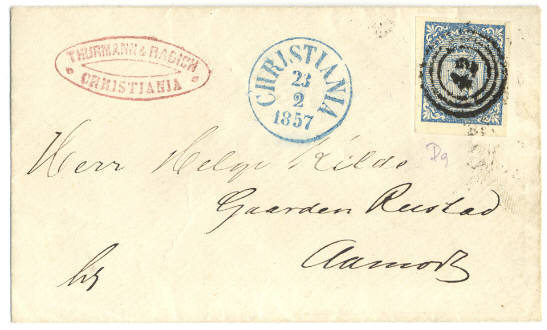 THURMANN & RABICH
CHRISTIANIA
CHRISTIANIA
23
2
1857
42
Dg
Herr Helge Kildo
Gaarden Rustad
Aamodt